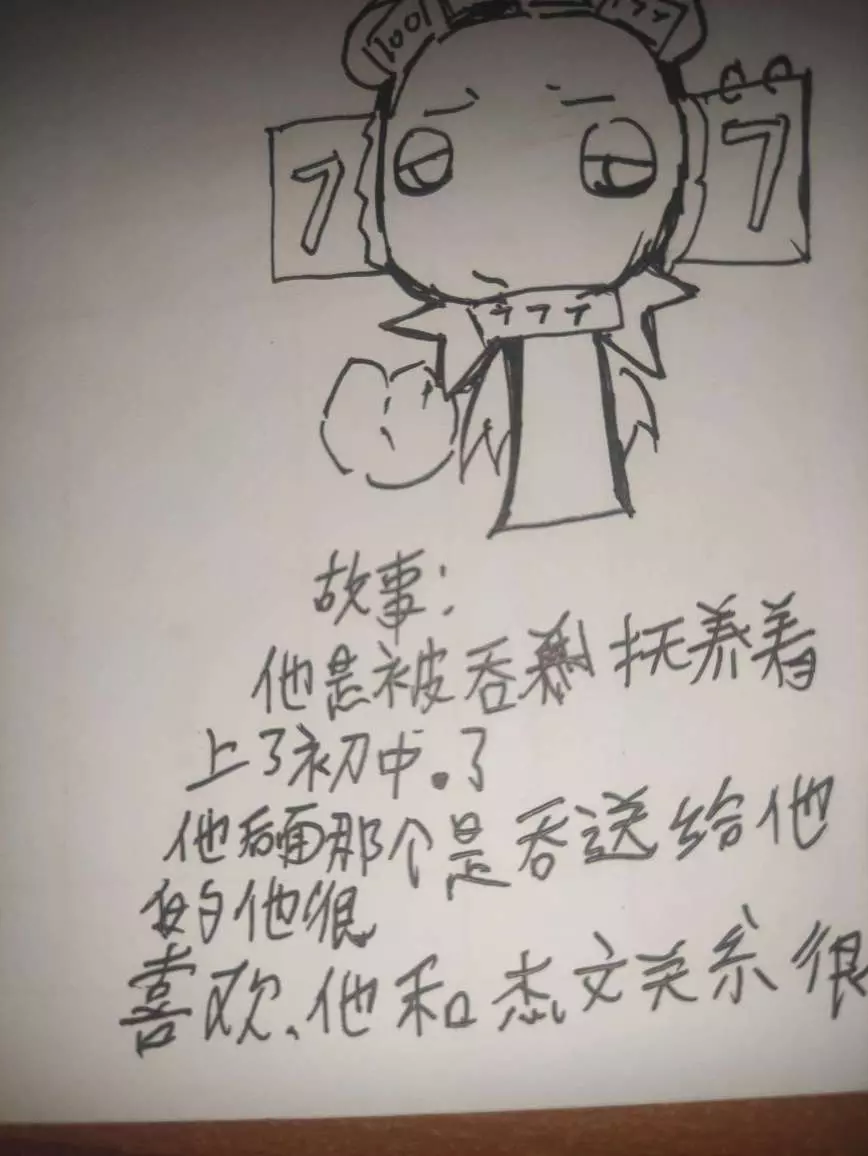 1001
777
7
7
777
故事：
他是被吞 抚养着
上了初中.了
他后面那个是吞送给他
的他很
喜欢、他和杰文关系很